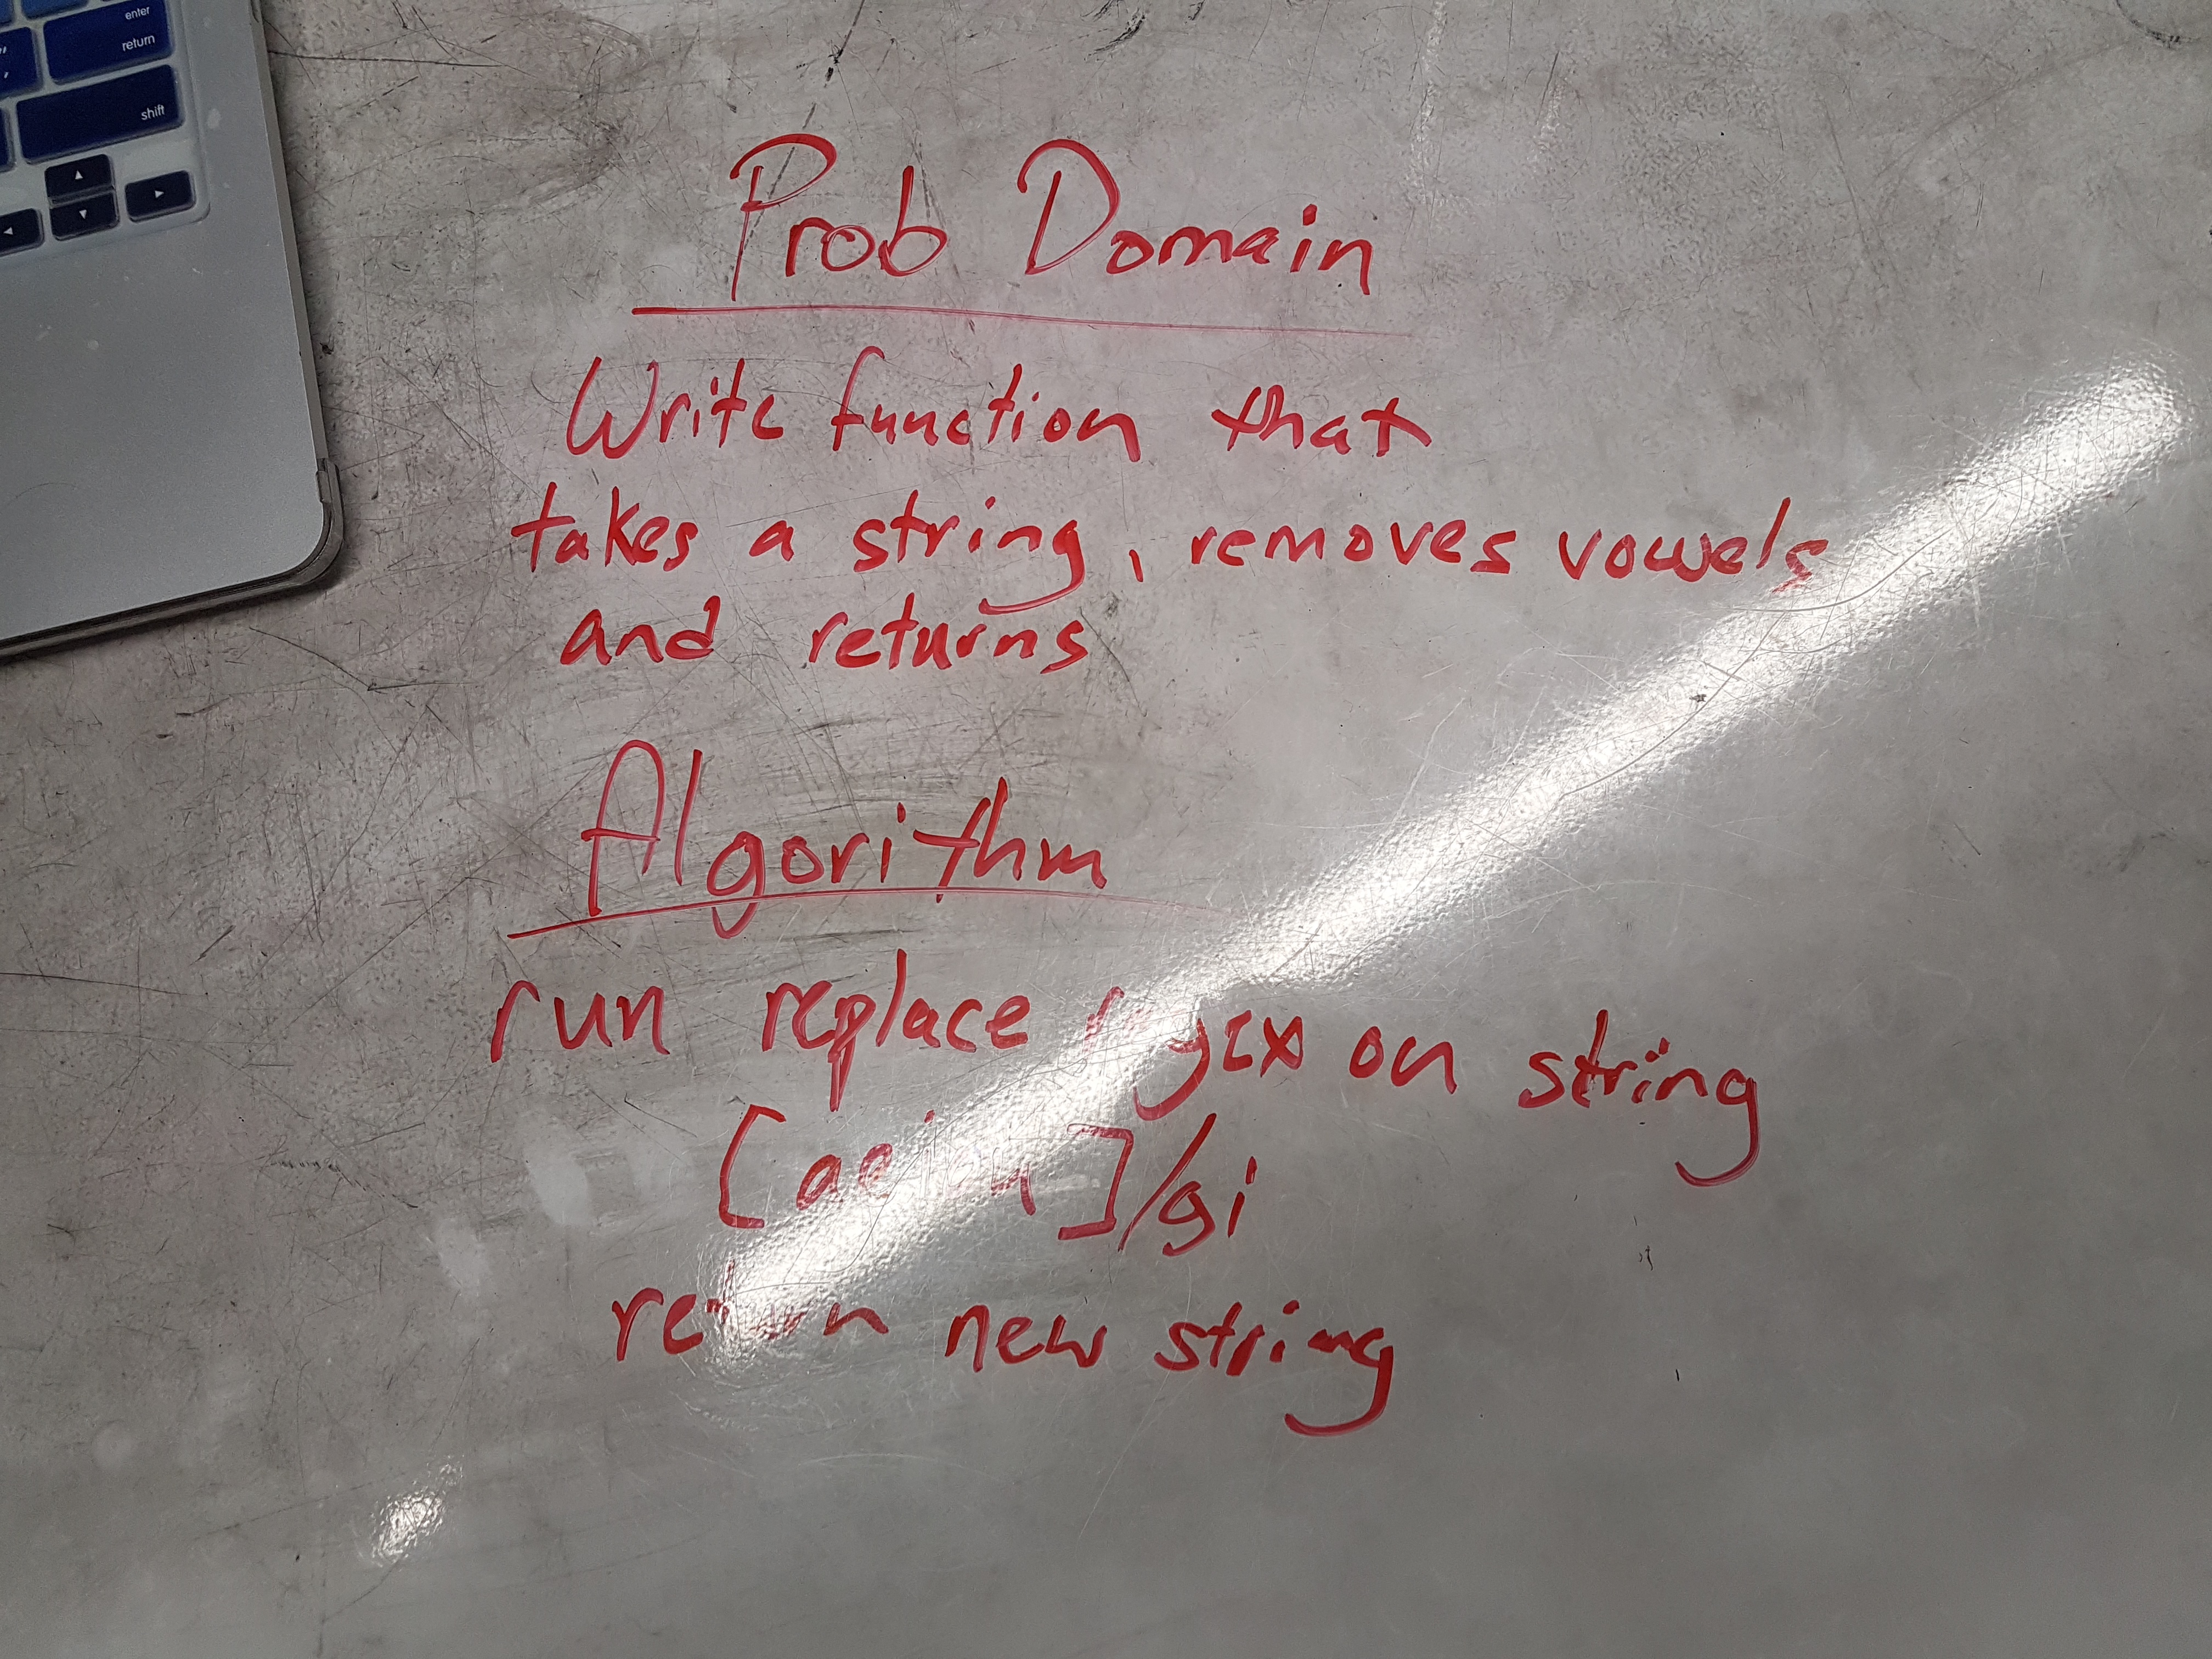 enter
return
shift
Prob Domain
Write function that
takes a string, removes vowels
and returns
Algorithm
run replace regex on string
[aeiou]/gi
return new string